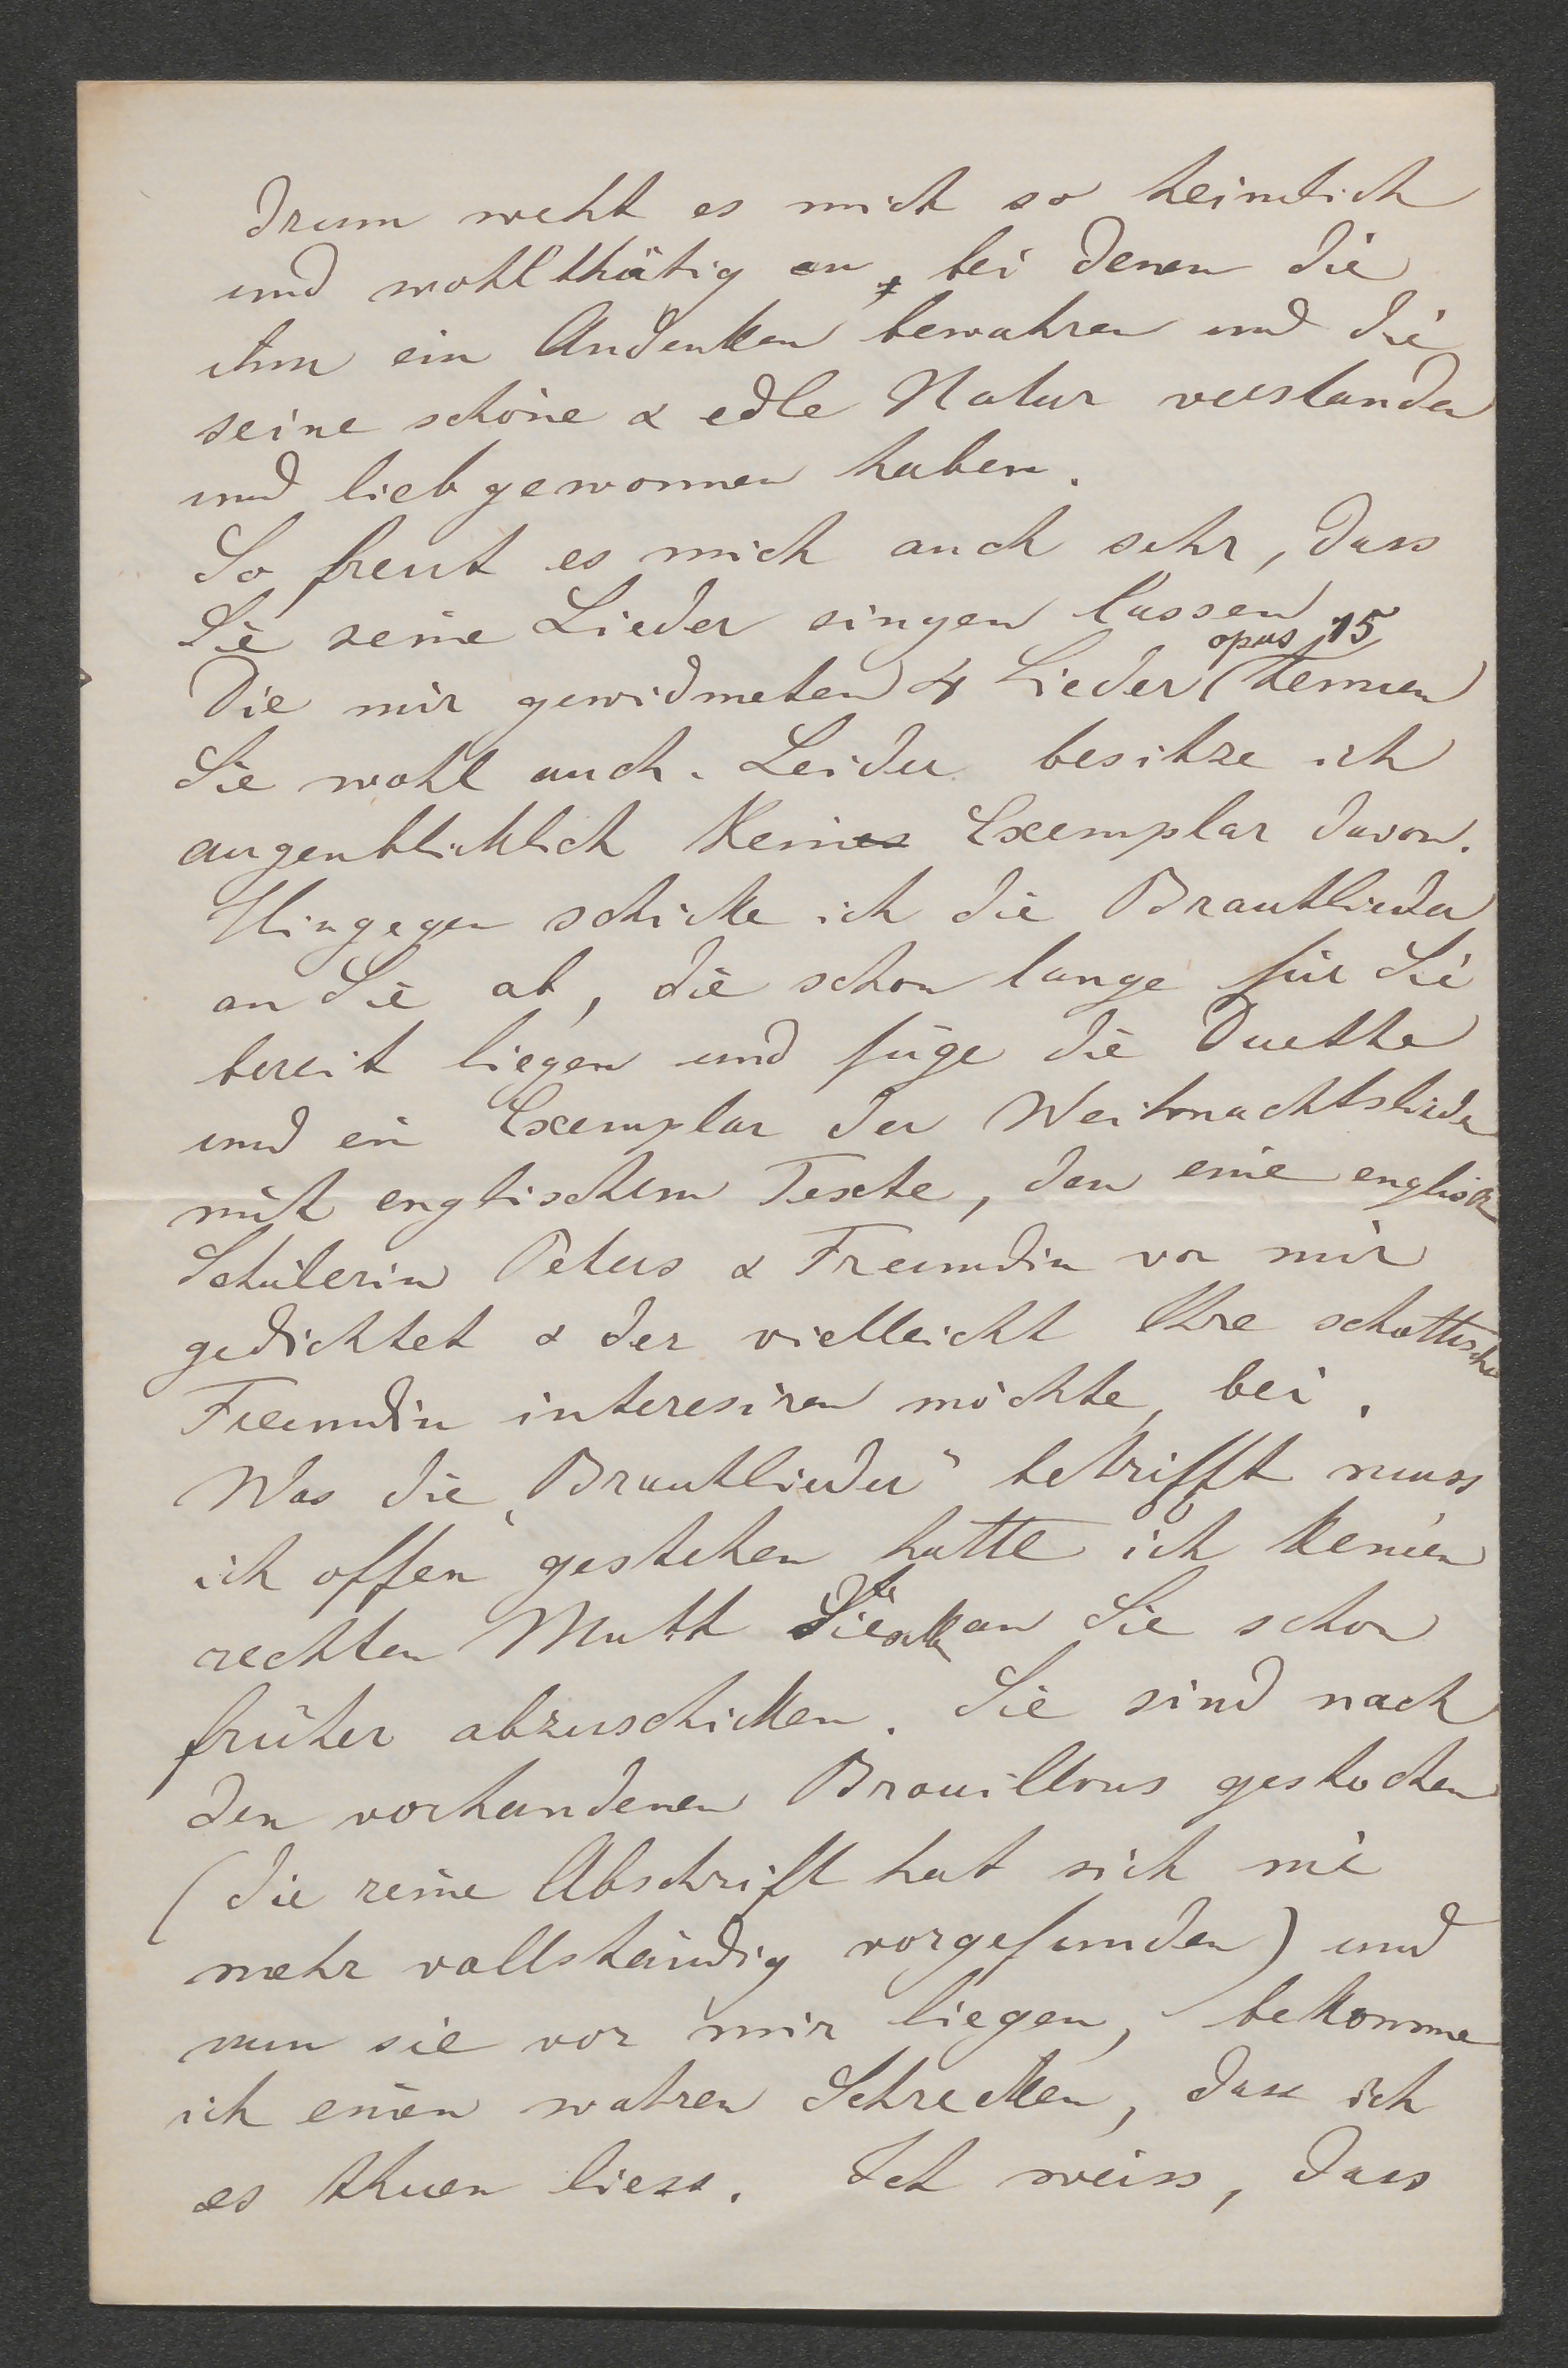 drum weht es mich so heimlich
und wohlthätig an, bei denen die
ihm ein Andenken bewahren und die
seine schöne & edle Natur verstanden
und lieb gewonnen haben.
So freut es mich auch sehr, dass
Sie seine Lieder singen lassen
opus 15
Die mir gewidmeten 4 Lieder (kennen
Sie wohl auch. Leider besitze ich
augenblicklich kein Exemplar davon.
Hingegen schicke ich die Brautlieder
an Sie ab, die schon lange für Sie
bereit liegen und füge die Duette
und ein Exemplar der Weihnachtslieder
mit englischem Texte, den eine englische
Schülerin Peters & Freundin von mir
gedichtet & der vielleicht Ihre schottische
Freundin interesiren möchte, bei.
Was die „Brautlieder" betrifft muss
ich offen gestehen hatte ich keinen
rechten Muth an Sie schon
früher abzuschicken. Sie sind nach
den vorhandenen Brouillons gestochen
(die reine Abschrift hat sich nie
mehr vollständig vorgefunden) und
nun sie vor mir liegen, bekomme
ich einen wahren Schrecken, dass ich
es thuen liess. Ich weiss, dass